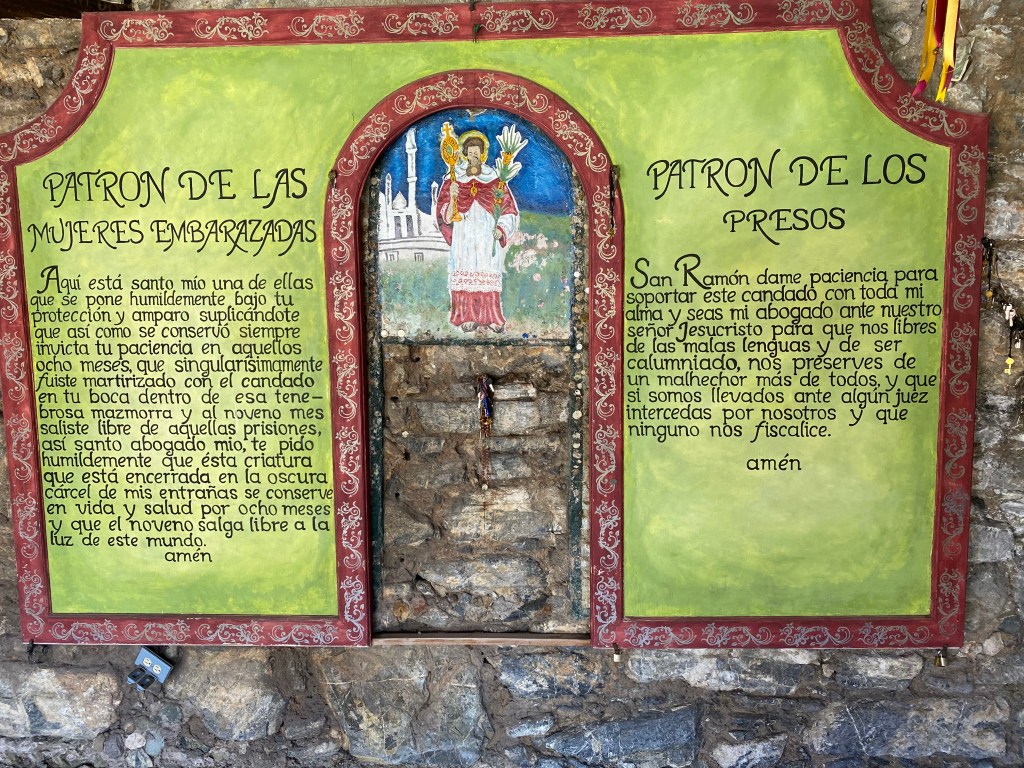 PATRON DE LAS
MUJERES EMBARAZADAS
Aquí está santo mío una de ellas
que se pone humildemente bajo tu
protección y amparo suplicándote
que así como se conservó siempre
invicta tu paciencia en aquellos
ocho meses, que singularisimamente
fuiste martirizado con el candado
en tu boca dentro de esa tene-
brosa mazmorra y al noveno mes
saliste libre de aquellas prisiones,
así santo abogado mio, te pido
humildemente que ésta criatura
que está encerrada en la oscura
cárcel de mis entrañas se conserve
en vida y salud por ocho meses
y que el noveno salga libre a la
luz de este mundo.
amén
PATRON DE LOS
PRESOS
San Ramón dame paciencia para
soportar este candado con toda mi
alma y seas mi abogado ante nuestro
señor Jesucristo para que nos libres
de las malas lenguas y de ser
calumniado, nos presérves de
un malhechor más de todos, y que
si somos llevados ante algún juez
intercedas por nosotros y que
ninguno nos fiscalice.
amén